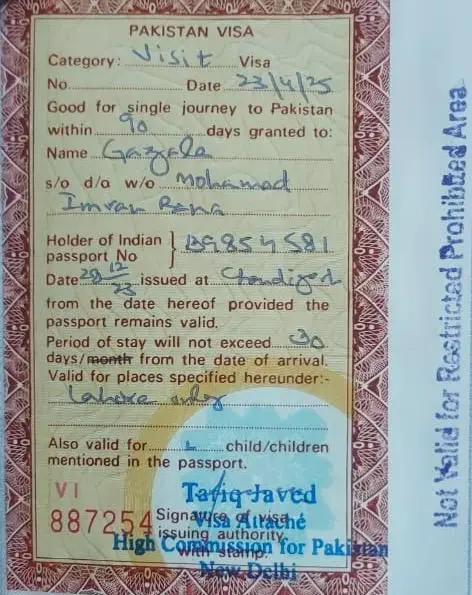 PAKISTAN VISA
Category: Visit Visa
No. Date 23/4/25
Good for single journey to Pakistan
within 90 days granted to:
Name Gazzala
s/o d/o w/o Mohamad
Imran Rana
Holder of Indian
passport No
Date 28 12 23 issued at Chandigarh
from the date hereof provided the
passport remains valid.
Period of stay will not exceed 30
days/month from the date of arrival.
Valid for places specified hereunder:-
Lahore only
Also valid for child/children
mentioned in the passport.
VI
887254
Signature of visa
issuing authority.
with stamp.
Tariq Javed
Visa Attaché
High Commission for Pakistan
New Delhi
Not Valid for Restricted Prohibited Area